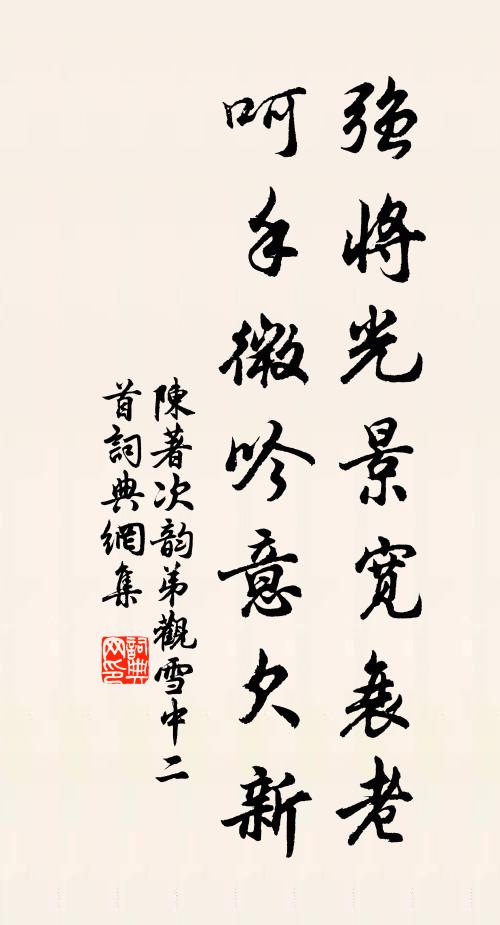 強將光景寬衰老
呵手微吟意欠新
陳著次韵弟觀雪中二
首詞典網集
詞典
网印